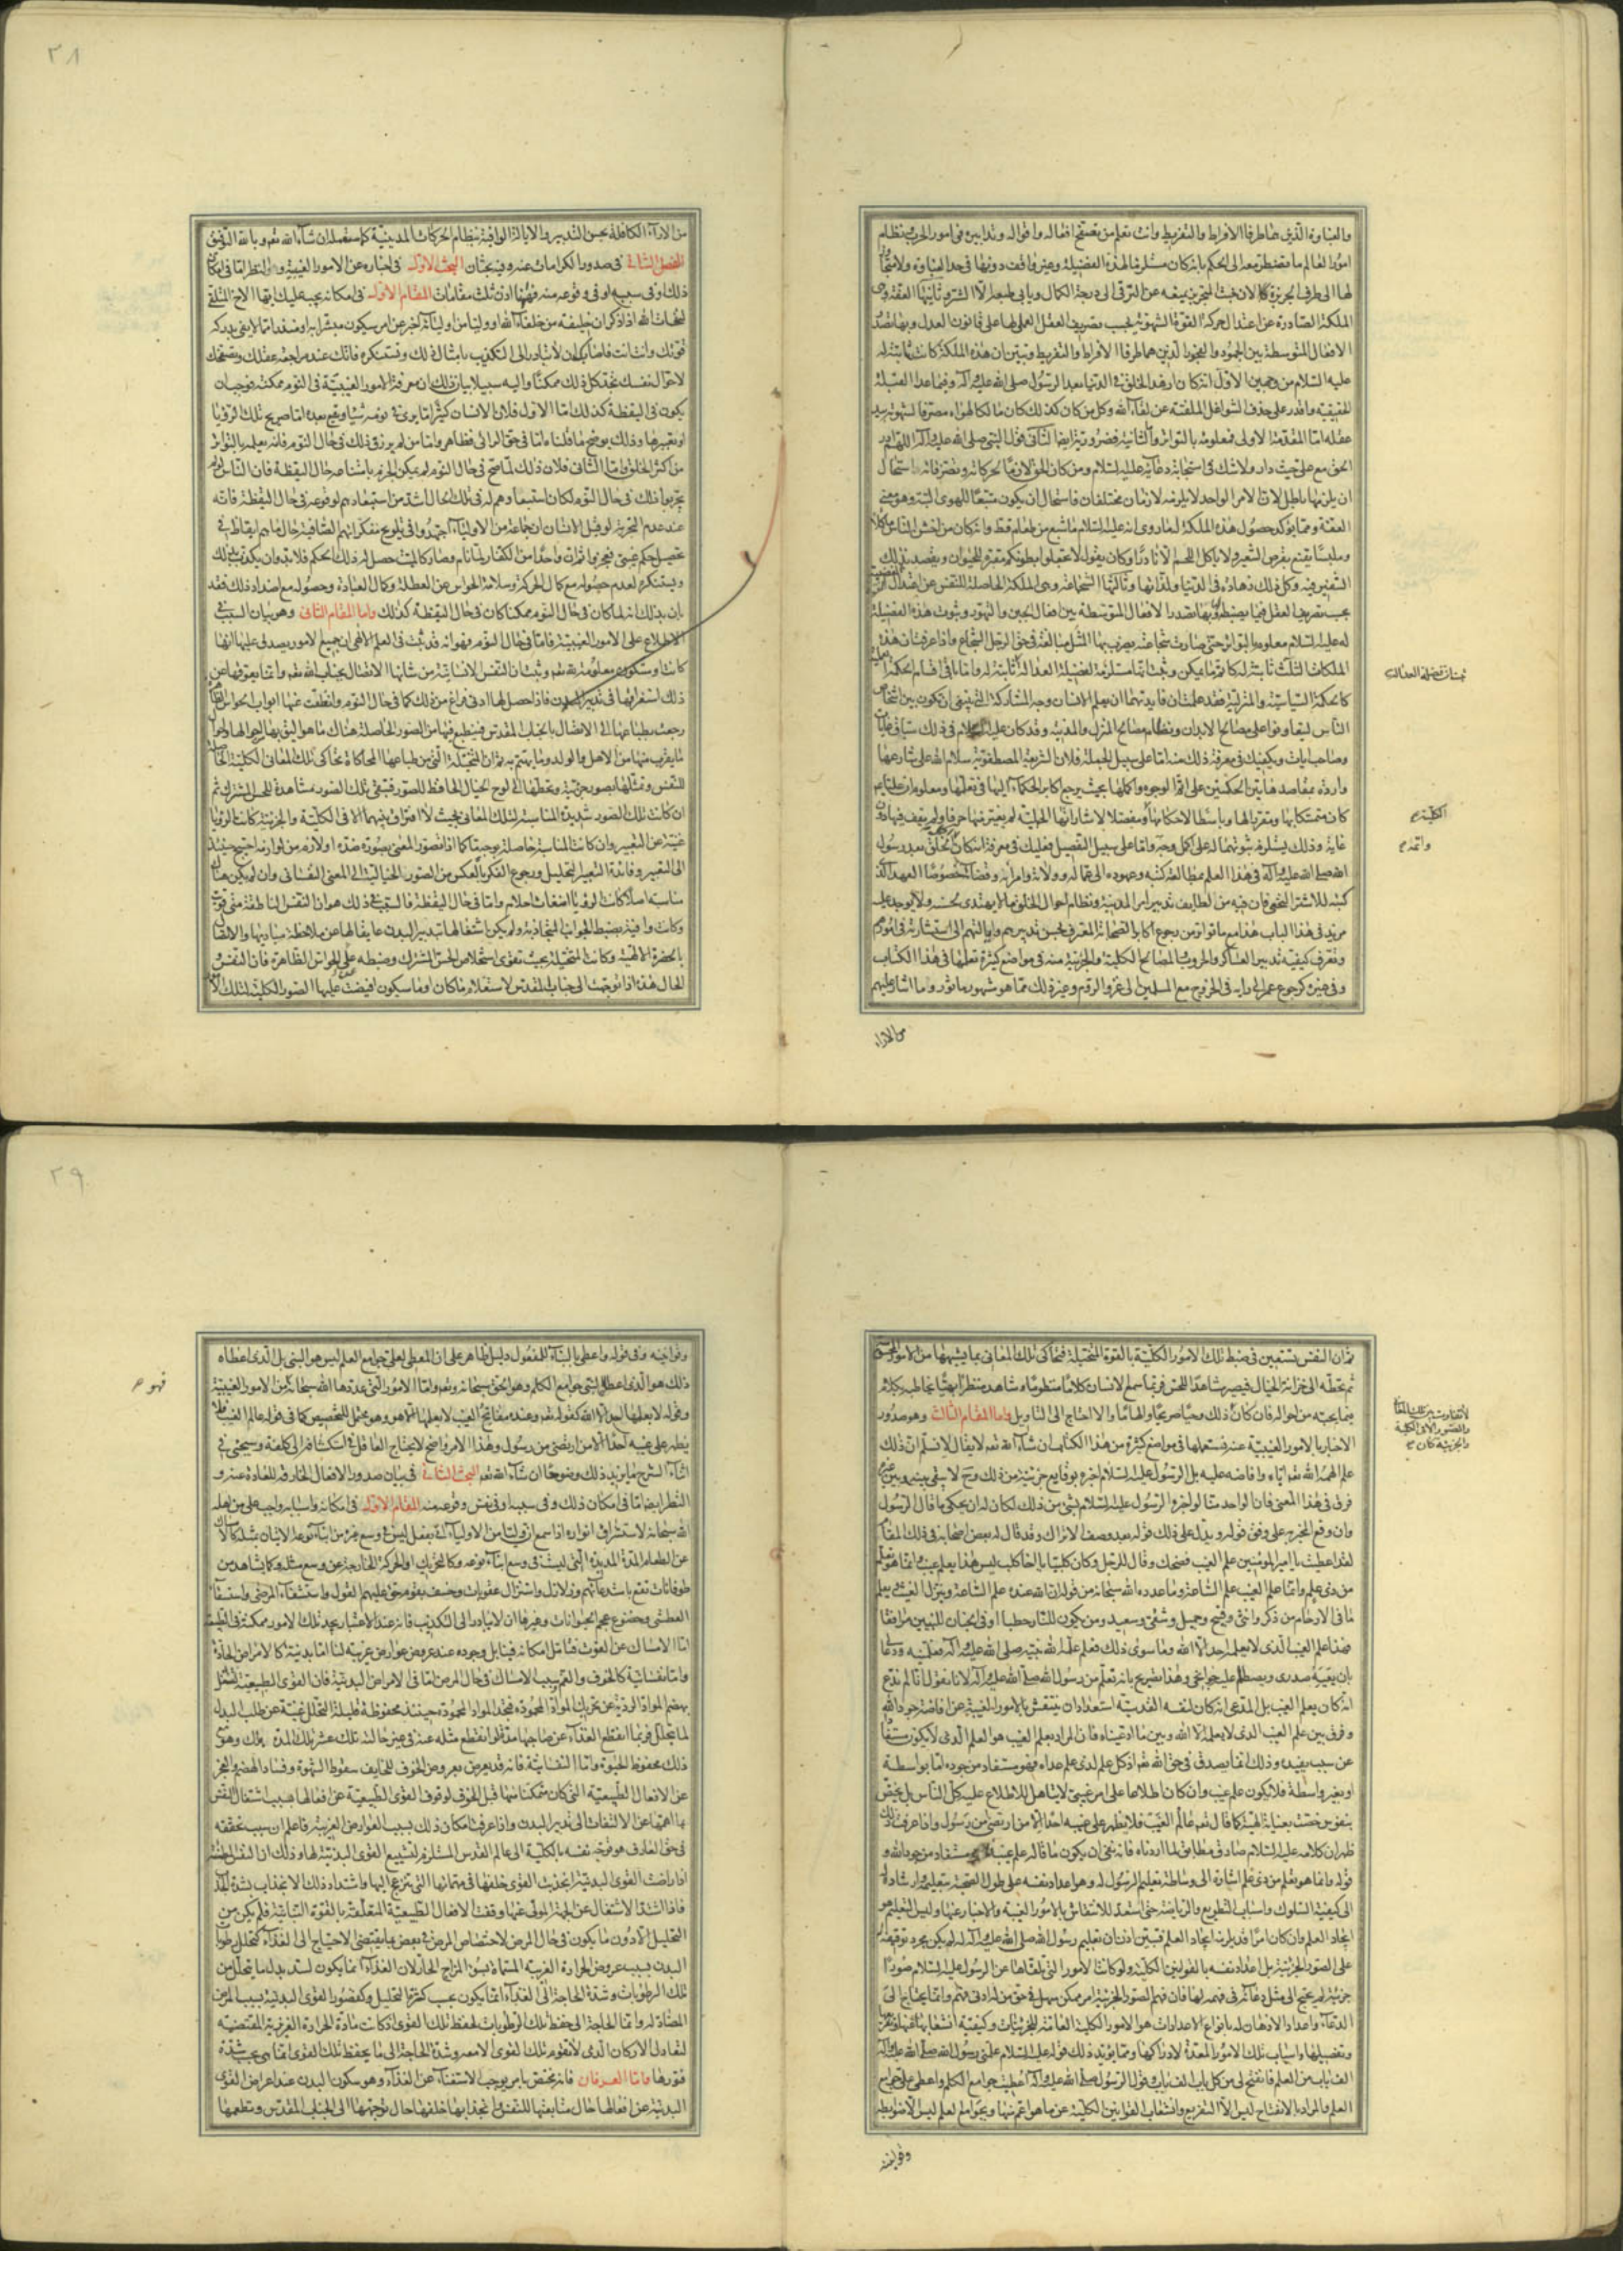 والغباوة الذين هما طرفا الافراط والتفريط وانت تعلم من تصفح افعاله واقواله وتدابيره فى امور الحرب ونظام
امور العالم ما تضطر معه الى الحكم بانه كان مستلزما لهذه الفضيلة وغير واقف دونها فى حد الغباوة ولا متجاوز
لها الى طرف الجربزة لان خبث المتجربز يمنعه عن الترقى الى درجة الكمال ويابى طبعه الا الشر وثانيها العفة وهى
الملكة الصادرة عن اعتدال حركة القوة الشهوية بحسب تصريف العقل العملى لها على قانون العدل وبها تصدر
الافعال المتوسطة بين الجمود والفجور الذين هما طرفا الافراط والتفريط وتبين ان هذه الملكة كانت ثابتة له
عليه السلام من وجهين الاول انه كان ازهد الخلق فى الدنيا بعد الرسول صلى الله عليه وآله وفيما عدا القبلة
الحقيقية واقدر على حذف الشواغل الملفتة عن لقاء الله وكل من كان كذلك كان مالكا لهواه مصرفا لشهوته بيد
عقله اما المقدمة الاولى فمعلومة بالتواتر والثانية فضرورية ايضا الثانى قول النبى صلى الله عليه وآله اللهم ادر
الحق مع على حيث دار ولا شك فى استجابة دعائه عليه السلام ومن كان الحق لازما لحركاته وتصرفاته استحال
ان يلزمها باطل لان الامر الواحد لا يلزمه لازمان مختلفان فاستحال ان يكون متبعا للهوى البتة وهو معنى
العفة ومما يؤكد حصول هذه الملكة له ما روى انه عليه السلام ما شبع من طعام قط وانه كان من اخشن الناس ماكلا
وملبسا يقنع بقرص الشعير ولا ياكل اللحم الا نادرا وكان يقول لا تجعلوا بطونكم مقبرة للحيوان ويقصد بذلك
التنفير فيه وكل ذلك زهادة فى الدنيا ولذاتها وثالثها الشجاعة وهى الملكة الحاصلة للنفس عن اعتدال القوة الغضبية
بحسب تصريف العقل فيما يضبطه وبها تصدر الافعال المتوسطة بين افعال الجبن والتهور وثبوت هذه الفضيلة
له عليه السلام معلومة بالتواتر حتى صارت شجاعته يضرب بها المثل مبالغة فى حق الرجل الشجاع واذا عرفت ان هذه
الملكات الثلث ثابتة له كاتم ما يمكن وثبت انها مستلزمة لفضيلة العدالة ثابتة له واما باقى اقسام الحكمة العملية
كالحكمة السياسية والمنزلية فقد علمت ان فايدتهما ان يعلم الانسان وجه المشاركة التى ينبغى ان تكون بين اشخاص
الناس ليتعاونوا على مصالح الابدان ونظام مصالح المنزل والمدينة وقد كان عليه السلام فى ذلك سباق غايات
وصاحب ايات ويكفيك فى معرفة ذلك منه اما على سبيل الجملة فلان الشريعة المصطفوية سلام الله على شارعها
واردة بمقاصد هاتين الحكمتين على اتم الوجوه واكملها بحيث يرجع اكابر الحكماء اليها فى تعلمها ومعلوم ان عليا ع
كان متمسكا بها ومقررا لها وباسطا لاحكامها ومفصلا لاشاراتها الجملية لم يغير منها حرفا ولم يقف فيها دون
غاية وذلك يستلزم ثبوتهما له على اكمل وجه واما على سبيل التفصيل فعليك فى معرفة انه كان اكمل الخلق بعد رسول
الله صلى الله عليه وآله فى هذا العلم بمطالعة كتبه وعهوده الى عماله وولاته وامرائه وقضاته خصوصا العهد الذى
كتبه للاشتر النخعى فان فيه من لطايف تدبير امر المدينة ونظام احوال الخلق ما لا يهتدى بحسنه ولا يوجد عليه
مزيد فى هذا الباب هذا مع ما تواتر من رجوع اكابر الصحابة المعترف بحسن تدبيرهم وايالتهم الى استشارته فى امورهم
وتعرف كيفية تدبير العساكر والحروب والمصالح الكلية والجزئية منه فى مواضع كثيرة تعلمها فى هذا الكتاب
وفى غيره كرجوع عمر الى رايه فى الخروج مع المسلمين الى غزو الروم وغير ذلك مما هو مشهور ماثور وما اشار عليهم
من الاراء
الكلية
واتمه
٢٨
من الاراء الكافلة بحسن التدبير والايالة الوافية بنظام الحركات المدينية كما ستعمله ان شاء الله تعالى وبالله التوفيق
الفصل الثانى فى صدور الكرامات عنه وفيه بحثان البحث الاول فى اخباره عن الامور الغيبية والنظر اما فى امكان
ذلك او فى سببه او فى وقوعه منه فههنا اذن ثلث مقامات المقام الاول فى امكانه يجب عليك ايها الاخ المتلقى
لنفحات الله اذا ذكر ان خليفة من خلفاء الله او وليا من اوليائه اخبر عن امر سيكون مبشرا به او منذرا مما لا يفى بدركه
قوتك وانت انت فاصابك ان لا تبادر الى التكذيب بامثال ذلك وتستنكره فانك عند مراجعة عقلك وتصفحك
لاحوال نفسك تجد كل ذلك ممكنا واليه سبيلا بيان ذلك ان معرفة الامور الغيبية فى النوم ممكنة فوجب ان
يكون فى اليقظة كذلك اما الاول فلان الانسان كثيرا ما يرى فى نومه شيا ويقع بعده اما صريح تلك الرؤيا
او تعبيرها وذلك يوضح ما قلناه اما فى حق الرائى فظاهر واما من لم يرزق ذلك فى حال النوم فانه يعلمه بالتواتر
من اكثر الخلق واما الثانى فلان ذلك لما صح فى حال النوم لم يمكن الجزم بامتناعه حال اليقظة فان الناس لو لم
يجربوا ذلك فى حال النوم لكان استبعادهم له فى تلك الحال اشد من استبعادهم لوقوعه فى حال اليقظة فانه
عند عدم التجربة لو قيل لانسان ان جماعة من الاولياء اجتهدوا فى تلويح مفكراتهم الصافية حال ما هم ايقاظ فى
تحصيل حكم غيبى فعجزوا ثم ان واحدا من الكفار لما نام وصار كالميت حصل له ذلك الحكم فلا بد وان يكذب بذلك
ويستنكره لعدم حصوله مع كمال الحركة وسلامة الحواس عن العطلة وكمال العبادة وحصوله مع اضداد ذلك فقد
بان بذلك انه لما كان فى حال النوم ممكنا كان فى حال اليقظة كذلك واما المقام الثانى وهو بيان السبب فى
الاطلاع على الامور الغيبية فاما فى حال النوم فهو انه قد ثبت فى العلم الالهى ان جميع الامور يصدق عليها انها
كانت او ستكون معلومة لله تعالى وثبت ان النفس الانسانية من شانها الاتصال بجناب الله تعالى وانما يعوقها عن
ذلك استغراقها فى تدبير البدن فاذا حصل لها ادنى فراغ من ذلك كما فى حال النوم وانغلقت عنها ابواب الحواس الظاهرة
رجعت بطباعها الى الاتصال بالجناب المقدس فينطبع فيها من الصور الحاصلة هناك ما هو اليق بها من احوالها واحوال
ما يقرب منها من الاهل والولد وما يهتم به ثم ان المتخيلة التى من طباعها المحاكاة تحاكى تلك المعانى الكلية الحاصلة
للنفس وتمثلها بصور جزئية وتحطها الى لوح الخيال الحافظ للصور فتبقى تلك الصور مشاهدة للحس المشترك ثم
ان كانت تلك الصور شديدة المناسبة لتلك المعانى بحيث لا افتراق بينهما الا فى الكلية والجزئية كانت الرؤيا
غنية عن التعبير وان كانت المناسبة حاصلة بوجه ما كما اذا تصور المعنى بصورة ضده او لازم من لوازمه احتيج حينئذ
الى التعبير وفائدة التعبير التحليل ورجوع الفكر بالعكس من الصور الخيالية الى المعنى النفسانى وان لم يكن هناك
مناسبة اصلا كانت الرؤيا اضغاث احلام واما فى حال اليقظة فالسبب فى ذلك هو ان النفس الناطقة متى قويت
وكانت وافية بضبط الجوانب المتجاذبة ولم يكن اشتغالها بتدبير البدن عايقا لها عن ملاحظة مباديها والاتصال
بالحضرة الالهية وكانت المتخيلة بحيث تقوى استخلاص الحس المشترك وضبطه عن الحواس الظاهرة فان النفس و
الحال هذه اذا توجهت الى جناب المقدس لاستعلام ما كان او ما سيكون افيضت عليها الصور الكلية لتلك الامور
ثم ان النفس تستعين فى ضبط تلك الامور الكلية بالقوة المتخيلة فتحاكى تلك المعانى بما يشبهها من الامور المحسوسة
ثم تحطه الى خزانة الخيال فيصير مشاهدا للحس فربما سمع الانسان كلاما منظوما وشاهد منظرا بهيا يخاطبه بكلام
فيما يحبه من احواله فان كان ذلك وحيا صريحا والهاما والا احتاج الى التاويل واما المقام الثالث وهو صدور
الاخبار بالامور الغيبية عنه فستعلمها فى مواضع كثيرة من هذا الكتاب ان شاء الله تعالى لا يقال لا نسلم ان ذلك
علم الهمه الله تعالى اياه وافاضه عليه بل الرسول عليه السلام اخبره بوقايع جزئية من ذلك وح لا يبقى بينه وبين غيره
فرق فى هذا المعنى فان الواحد منا لو اخبره الرسول عليه السلام بشئ من ذلك لكان له ان يحكى ما قال الرسول
وان وقع المخبر به على وفق قوله ويدل على ذلك قوله بعد وصف الاتراك وقد قال له بعض اصحابه فى ذلك المقام
لقد اعطيت يا امير المؤمنين علم الغيب فضحك وقال للرجل وكان كلبيا يا اخا كلب ليس هذا بعلم غيب وانما هو تعلم
من ذى علم وانما علم الغيب علم الساعة وما عدده الله سبحانه من قوله ان الله عنده علم الساعة وينزل الغيث ويعلم
ما فى الارحام من ذكر وانثى وقبيح وجميل وشقى وسعيد ومن يكون للنار حطبا او فى الجنان للنبيين مرافقا
فهذا علم الغيب الذى لا يعلمه احد الا الله وما سوى ذلك فعلم علمه الله نبيه صلى الله عليه وآله فعلمنيه ودعا لى
بان يعيه صدرى وتضطم عليه جوانحى وهذا تصريح بانه تعلم من رسول الله صلى الله عليه وآله لانا نقول انا لم ندع
انه كان يعلم الغيب بل المدعى انه كان لنفسه القدسية استعداد ان ينتقش بالامور الغيبية عن افاضة جود الله
وفرق بين علم الغيب الذى لا يعلمه الا الله وبين ما ادعيناه فان المراد بعلم الغيب هو العلم الذى لا يكون مستفادا
عن سبب يفيده وذلك انما يصدق فى حق الله تعالى اذ كل علم لذى علم عداه فهو مستفاد من جوده اما بواسطة
او بغير واسطة فلا يكون علم غيب وان كان اطلاعا على امر غيبى لا يتاهل للاطلاع عليه كل الناس بل يختص
بنفوس خصت بعناية الهية كما قال تعالى عالم الغيب فلا يظهر على غيبه احدا الا من ارتضى من رسول واذا عرفت ذلك
ظهر ان كلامه عليه السلام صادق مطابق لما اردناه فانه نفى ان يكون ما قاله علم غيب مستفاد من جود الله و
قوله وانما هو تعلم من ذى علم اشارة الى وساطة تعليم الرسول له وهو اعداد نفسه على طول الصحبة بتعليمه وارشاده
الى كيفية السلوك واسباب التطويع والرياضة حتى استعد للانتقاش بالامور الغيبية والاخبار عنها وليس التعليم هو
ايجاد العلم وان كان امرا قد يلزمه ايجاد العلم فتبين اذن ان تعليم رسول الله صلى الله عليه وآله له لم يكن مجرد توقيفه
على الصور الجزئية بل اعداد نفسه بالقوانين الكلية ولو كانت الامور التى تلقاها عن الرسول عليه السلام صورا
جزئية لم يحتج الى مثل دعائه فى فهمه لها فان فهم الصور الجزئية امر ممكن سهل فى حق من له ادنى فهم وانما يحتاج الى
الدعاء واعداد الاذهان له بانواع الاعدادات هو الامور الكلية العامة للجزئيات وكيفية انشعابها عنها وتفريعها
وتفصيلها واسباب تلك الامور المعدة لادراكها ومما يؤيد ذلك قوله عليه السلام علمنى رسول الله صلى الله عليه وآله
الف باب من العلم فانفتح لى من كل باب الف باب وقول الرسول صلى الله عليه وآله اعطيت جوامع الكلم واعطى على جوامع
العلم والمراد بالانفتاح ليس الا التفريع وانشعاب القوانين الكلية عن ما هو اعم منها وبجوامع العلم ليس الا ضوابطه
وقوانينه
٢٩
وقوانينه وفى قوله واعطى بالبناء للمفعول دليل ظاهر على ان المعطى لعلى جوامع العلم ليس هو النبى بل الذى اعطاه
ذلك هو الذى اعطى النبى جوامع الكلم وهو الحق سبحانه وتعالى واما الامور التى عددها الله سبحانه من الامور الغيبية
وقوله لا يعلمها احد الا الله كقوله تعالى وعنده مفاتح الغيب لا يعلمها الا هو وهو محتمل للتخصيص كما فى قوله عالم الغيب فلا
يظهر على غيبه احدا الا من ارتضى من رسول وهذا الامر واضح لا يحتاج العاقل فى استكشافه الى كلفة وسيجئ فى
اثناء الشرح ما يزيد ذلك وضوحا ان شاء الله تعالى البحث الثانى فى بيان صدور الافعال الخارقة للعادة عنه و
النظر ايضا اما فى امكان ذلك وفى سببه او فى نفس وقوعه منه المقام الاول فى امكانه واسبابه واجب على من اهله
الله سبحانه لاستشراق انواره اذا سمع ان وليا من الاولياء اتى بفعل ليس فى وسع غيره من ابناء نوعه الاتيان بمثله كالامساك
عن الطعام المدة المديدة التى ليست فى وسع ابناء نوعه وكالتحريك او الحركة الخارجة عن وسع مثله وكما يشاهد من
طوفانات تقع باستدعائهم وزلازل واستنزال عقوبات وخسف بقوم حق عليهم القول واستشفاء المرضى واستسقاء
العطشى وخضوع عجم الحيوانات وغيرها ان لا يبادر الى التكذيب فانه عند الاعتبار يجد تلك الامور ممكنة فى الطبيعة
اما الامساك عن القوت فتامل امكانه فينا بل وجوده عند عروض عوارض غريبة لنا اما بدنية كالامراض الحادة
واما نفسانية كالخوف والغم وسبب الامساك فى حال المرض اما فى الامراض البدنية فان القوى الطبيعية تشتغل
بهضم المواد الردية عن تحريك المواد المحمودة فتجد المواد المحمودة حينئذ محفوظة قليلة التحلل غنية عن طلب البدل
لما يتحلل فربما انقطع الغذاء عن صاحبها مدة لو انقطع مثله عنه فى غير حالته تلك عشر تلك المدة هلك وهو مع
ذلك محفوظ الحيوة واما النفسانية فانه قد يعرض بعروض الخوف للخايف سقوط الشهوة وفساد الهضم والعجز
عن الافعال الطبيعية التى كان متمكنا منها قبل الخوف لوقوف القوى الطبيعية عن افعالها بسبب اشتغال النفس
بما اهمها عن الالتفات الى تدبير البدن واذا عرفت امكان ذلك بسبب العوارض الغريبة فاعلم ان سبب تحققه
فى حق العارف هو توجه نفسه بالكلية الى عالم القدس المستلزم لتشييع القوى البدنية لها وذلك ان النفس المطمئنة
اذا راضت القوى البدنية انجذبت القوى خلفها فى مهماتها التى تنزعج اليها واشتداد ذلك الانجذاب بشدة الجذب
فاذا اشتد الاشتغال عن الجهة المولى عنها وقفت الافعال الطبيعية المتعلقة بالقوة النباتية فلم يكن من
التحليل الا دون ما يكون فى حال المرض لاختصاص المرض فى بعض بما يقتضى الاحتياج الى الغذاء كتحلل رطوبات
البدن بسبب عروض الحرارة الغريبة المسماة بسوء المزاج الحار لان الغذاء انما يكون لسد بدل ما يتحلل من
تلك الرطوبات وشدة الحاجة الى الغذاء انما يكون بحسب كثرة التحليل وكقصور القوى البدنية بسبب المرض
المضاد له وانما الحاجة الى حفظ تلك الرطوبات لحفظ تلك القوى اذ كانت مادة الحرارة الغريزية المقتضية
لتعادل الاركان الذى لا تقوم تلك القوى الا معه وشدة الحاجة الى ما يحفظ تلك القوى انما هى بحسب شدة
فتورها واما العرفان فانه يختص بامر يوجب الاستغناء عن الغذاء وهو سكون البدن عند اعراض القوى
البدنية عن افعالها حال متابعتها للنفس وانجذابها خلفها حال توجهها الى الجناب المقدس وتطعمها
فهو